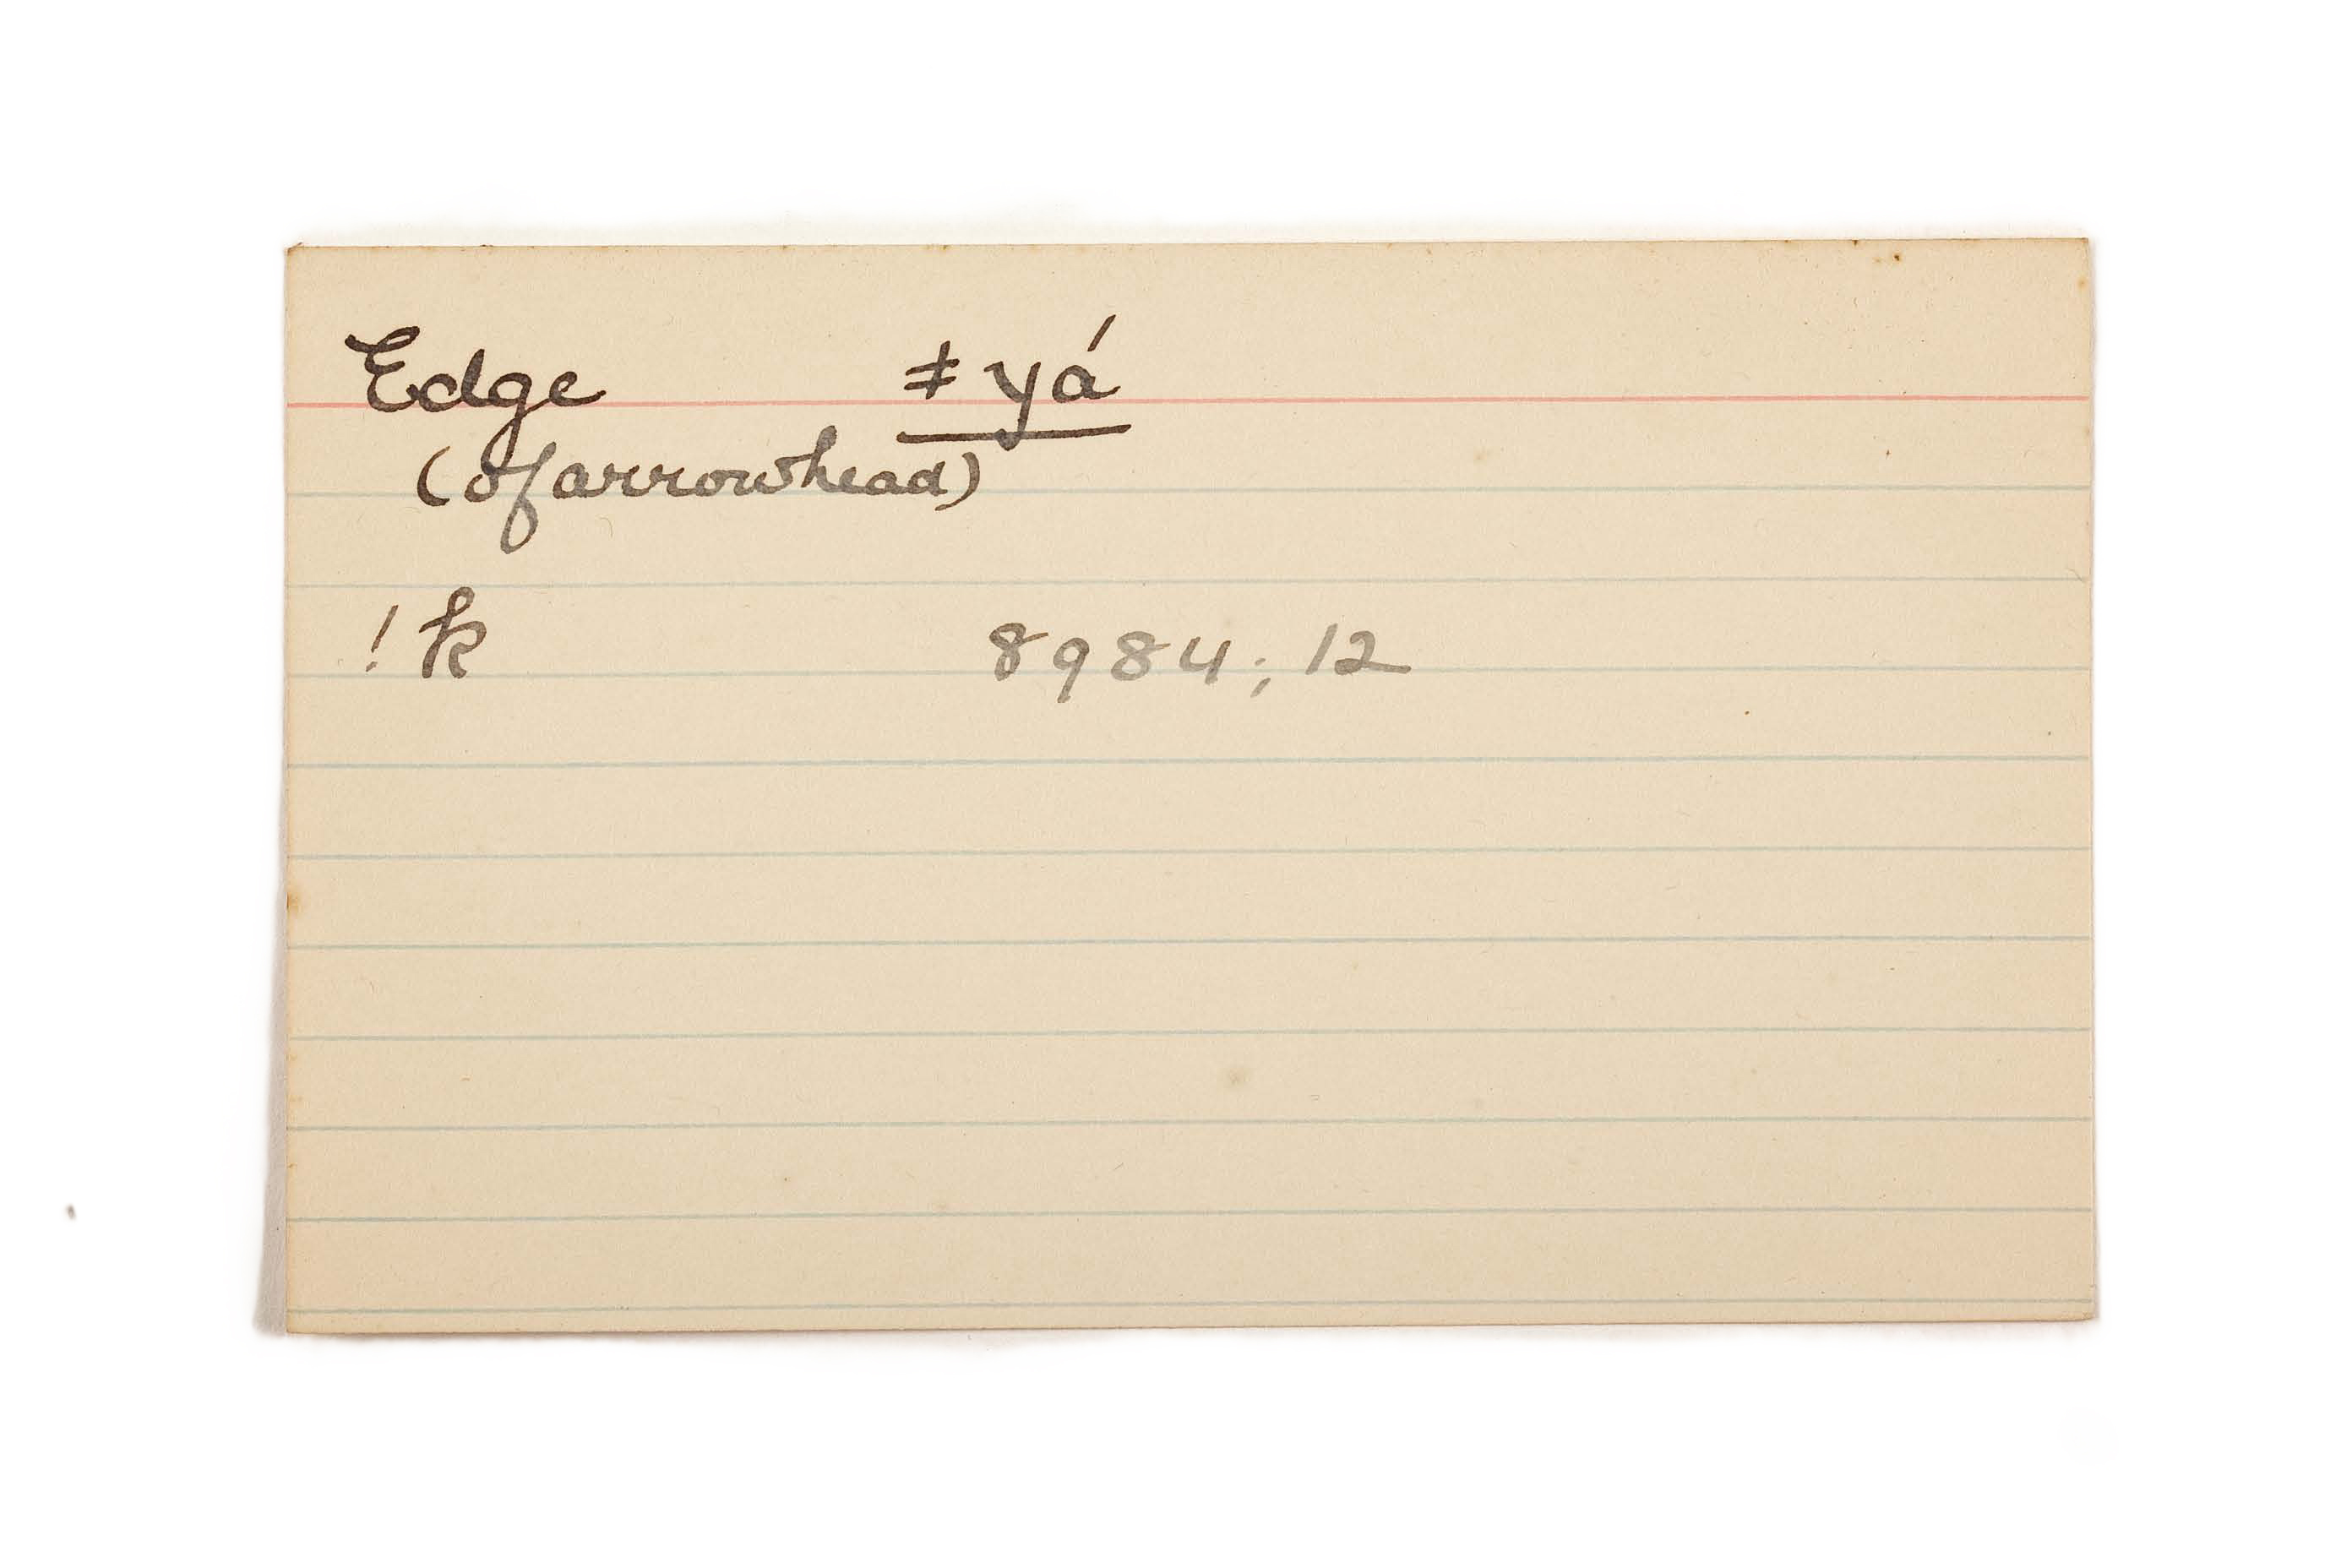 Edge ǂyá
(of arrowhead)
!k 8984; 12